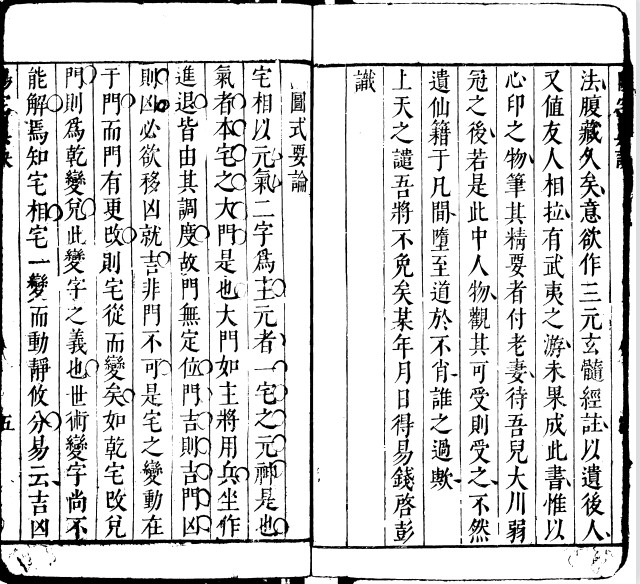 法腹藏久矣意欲作三元玄髓經註以遺後人
又值友人相拉有武夷之游未果成此書惟以
心印之物筆其精要者付老妻待吾兒大川弱
冠之後若是此中人物觀其可受則受之不然
遺仙籍于凡間墮至道於不肖誰之過歟
上天之譴吾將不免矣某年月日得易錢啓彭
識
圖式要論
宅相以元氣二字爲主元者一宅之元神是也
氣者本宅之大門是也大門如主將用兵坐作
進退皆由其調度故門無定位門吉則吉門凶
則凶必欲移凶就吉非門不可是宅之變動在
于門而門有更改則宅從而變矣如乾宅改兌
門則爲乾變兌此變字之義也世術變字尚不
能解焉知宅相宅一變而動靜攸分易云吉凶
五